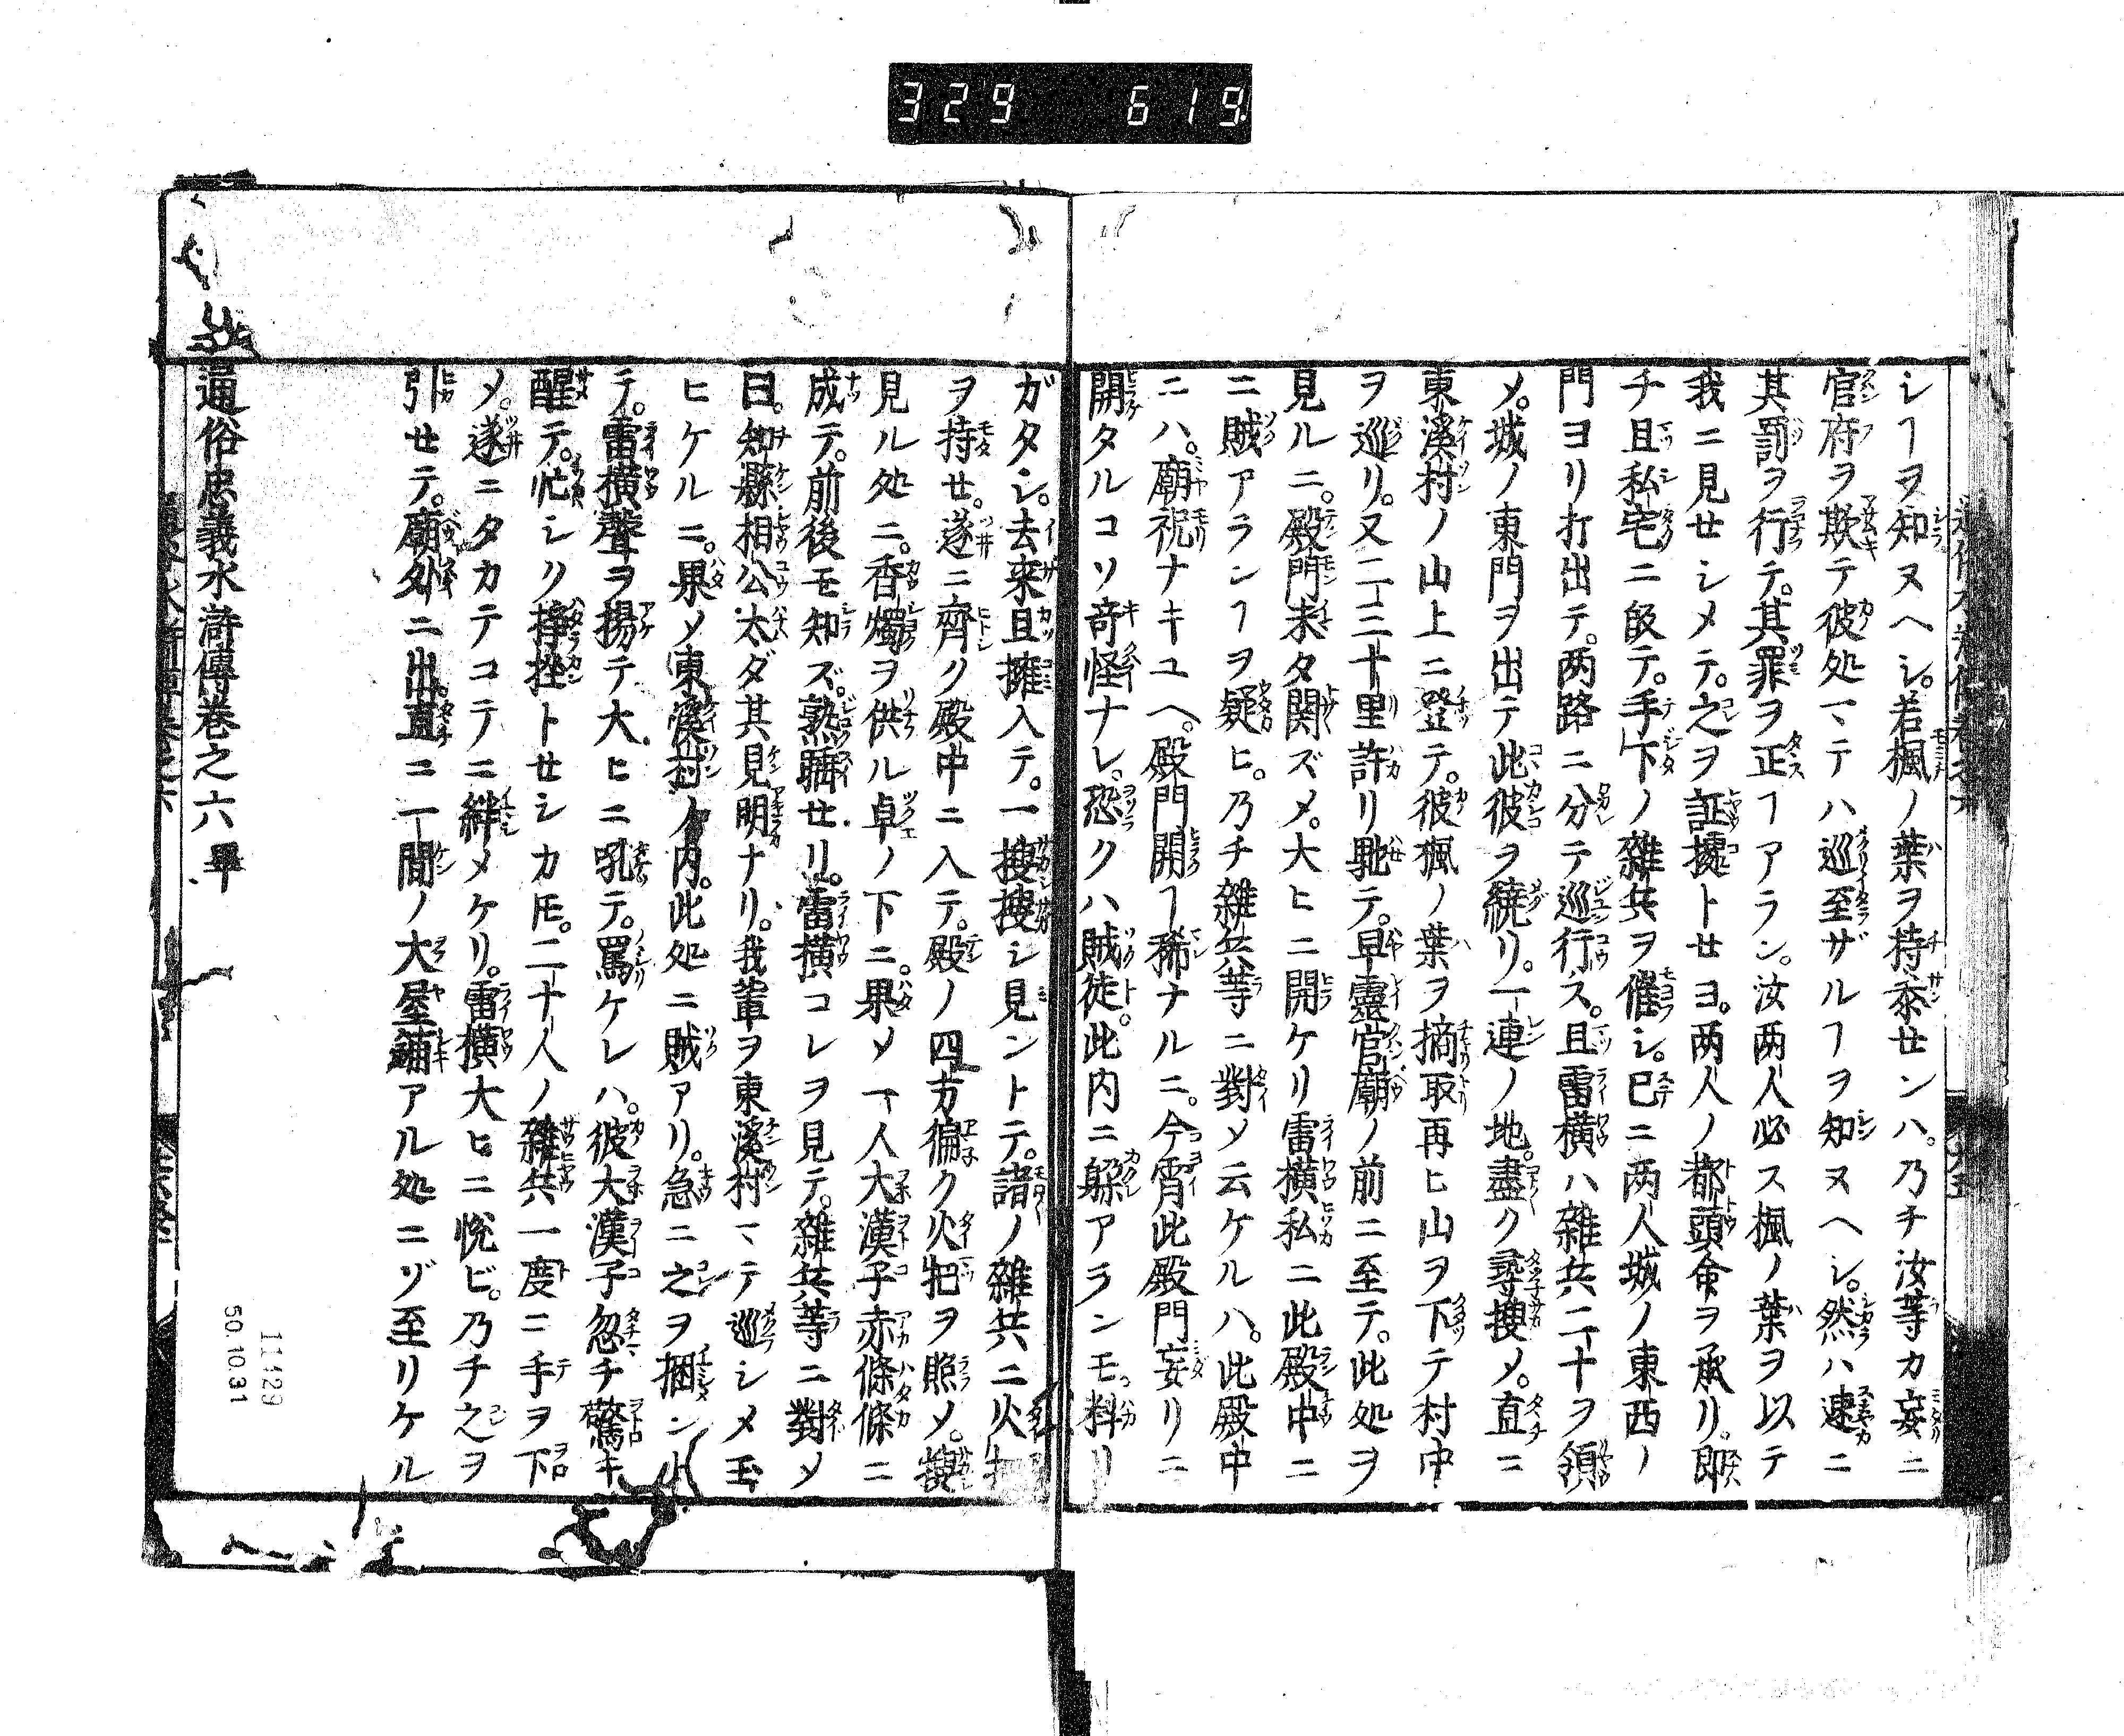 329 619
シヿヲ知ヌヘシ。若楓ノ葉ヲ持参センハ。乃チ汝等カ妄ニ
官府ヲ欺テ彼処マテハ巡至ザルヿヲ知ヌヘシ。然ハ速ニ
其罰ヲ行テ。其罪ヲ正ヿアラン。汝両人必ス楓ノ葉ヲ以テ
我ニ見セシメテ。之ヲ証據トセヨ。両人ノ都頭命ヲ承リ。即
チ且私宅ニ皈テ。手下ノ雜兵ヲ催シ。已ニ両人城ノ東西ノ
門ヨリ打出テ。両路ニ分テ巡行ス。且雷横ハ雜兵二十ヲ領
メ。城ノ東門ヲ出テ此彼ヲ繞リ。一連ノ地。盡ク尋搜メ。直ニ
東溪村ノ山上ニ登テ。彼楓ノ葉ヲ摘取再ヒ山ヲ下テ村中
ヲ巡リ。又二三十里許リ馳テ。早靈官廟ノ前ニ至テ。此処ヲ
見ルニ。殿門未タ関ズメ。大ヒニ開ケリ雷横私ニ此殿中ニ
ニ賊アランヿヲ疑ヒ。乃チ雜兵等ニ對メ云ケルハ。此殿中
ニハ。廟祝ナキユヘ。殿門開ヿ稀ナルニ。今宵此殿門妄リニ
開タルコソ奇怪ナレ。恐クハ賊徒。此内ニ躲アランモ料リ
ガタシ。去来且擁入テ。一搜搜シ見ントテ。諸ノ雜兵ニ火把
ヲ持セ。遂ニ齊ク殿中ニ入テ。殿ノ四方徧ク火把ヲ照メ。搜
見ル処ニ。香燭ヲ供ル卓ノ下ニ。果メ一人大漢子赤條條ニ
成テ。前後モ知ズ。熟睡セリ。雷横コレヲ見テ。雜兵等ニ對メ
曰。知縣相公太ダ其見明ナリ。我輩ヲ東溪村マテ巡シメ玉
ヒケルニ。果メ東溪村ノ内。此処ニ賊アリ。急ニ之ヲ捆ント
テ。雷横聲ヲ揚テ大ヒニ吼テ。罵ケレハ。彼大漢子忽チ驚キ
醒テ。忙シク挣挫トセシカ𪜈。二十人ノ雜兵一度ニ手ヲ下
メ。遂ニタカテコテニ絆メケリ。雷横大ヒニ悦ビ。乃チ之ヲ
引セテ。廟外ニ出。直ニ一間ノ大屋鋪アル処ニゾ至リケル
通俗忠義水滸傳巻之六畢
11429
50.10.31